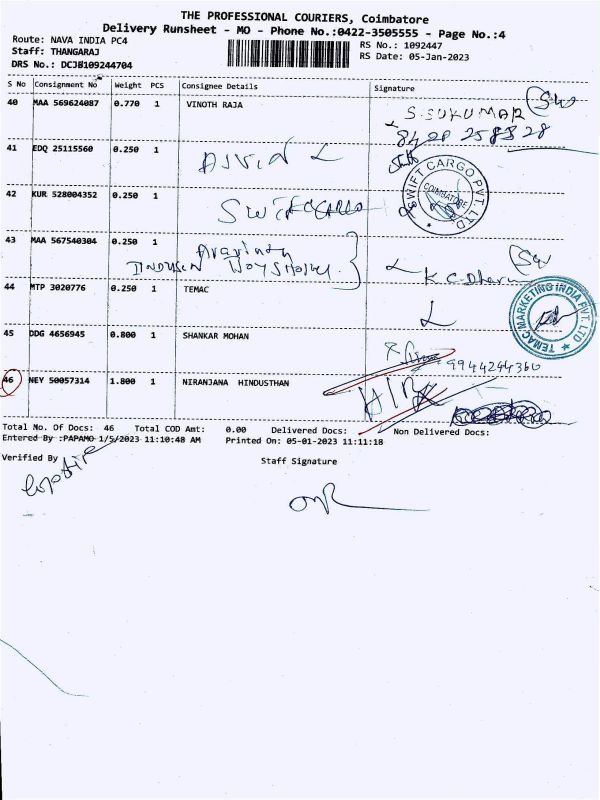 THE PROFESSIONAL COURIERS, Coimbatore
Delivery Runsheet - MO - Phone No.:0422-3505555 - Page No.:4
Route: NAVA INDIA PC4
RS No.: 1092447
Staff: THANGARAJ
RS Date: 05-Jan-2023
DRS No.: DCJB109244704
S No Consignment No Weight PCS Consignee Details Signature
40 MAA 569624087 0.770 1 VINOTH RAJA
S.SUKUMAR
41 EDQ 25115560 0.250 1
SWIFT CARGO PVT. LTD
COIMBATORE
42 KUR 528004352 0.250 1
43 MAA 567540304 0.250 1
44 MTP 3020776 0.250 1 TEMAC
TEMAC MARKETING INDIA PVT. LTD
45 DDG 4656945 0.800 1 SHANKAR MOHAN
9944244360
46 NEY 50057314 1.800 1 NIRANJANA HINDUSTHAN
Total No. Of Docs: 46 Total COD Amt: 0.00 Delivered Docs: Non Delivered Docs:
Entered By :PAPAMO 1/5/2023 11:10:48 AM Printed On: 05-01-2023 11:11:18
Verified By
Staff Signature